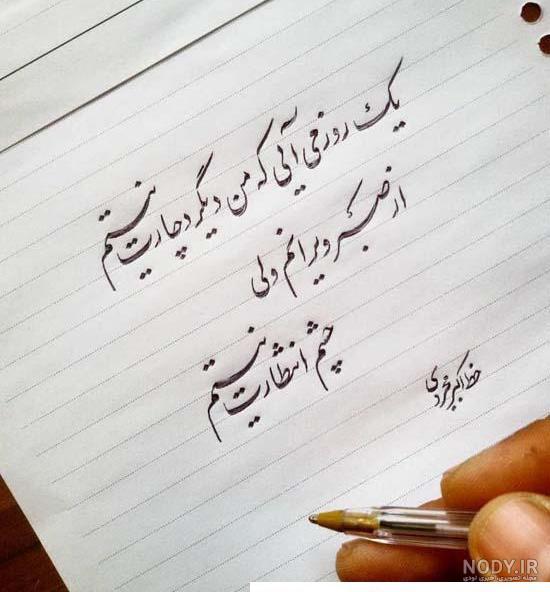 یک روز می آئی که من دیگر دچارت نیستم
از صبر ویرانم ولی
چشم انتظارت نیستم
خط اکبر فخردی
NODY.IR
مجله تصویری،خبری نودی